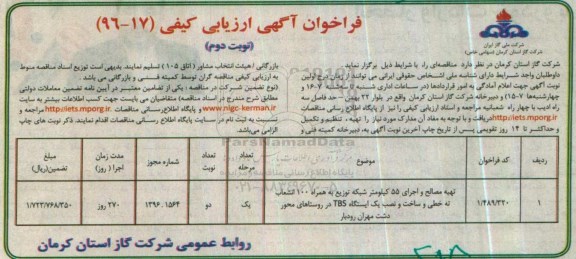 فراخوان آگهی ارزیابی کیفی (۱۷-۹۶)
(نوبت دوم)
شرکت ملی گاز ایران
شرکت گاز استان کرمان (سهامی خاص)
شرکت گاز استان کرمان در نظر دارد مناقصه‌ای را با شرایط ذیل برگزار نماید
داوطلبان واجد شرایط دارای شناسه ملی اشخاص حقوقی ایرانی می توانند از زمان درج اولین
نوبت آگهی جهت اعلام آمادگی به فور قراردادها (در ساعات اداری شنبه تا سه‌شنبه ۷-۱۶ و
چهارشنبه‌ها ۷-۱۵) و دبیرخانه شرکت گاز استان کرمان واقع در بلوار ۲۲ بهمن - حد فاصل سه
راه ادیب با چهار راه شعبانیه مراجعه و اسناد ارزیابی کیفی را نیز از پایگاه توزیع رسانی مناقصات
http://iets.mporg.ir دریافت و با توجه به مفاد آن مدارک مورد نیاز را تهیه، تنظیم و تکمیل
و حداکثر تا ۱۴ روز تقویمی پس از تاریخ چاپ آخرین نوبت آگهی به دبیرخانه کمیته فنی و
بازرگانی / هیئت انتخاب مشاور (اتاق ۱۰۵) تسلیم نمایند. بدیهی است توزیع اسناد مناقصه منوط
به ارزیابی کیفی مناقصه گران توسط کمیته فنی و بازرگانی می باشد.
(نوع تضمین شرکت در مناقصه: یکی از تضامین معتبر در آیین نامه تضمین معاملات دولتی
مطابق شرح مندرج در اسناد مناقصه) متقاضیان می بایست جهت کسب اطلاعات بیشتر به سایت
www.nigc-kerman.ir و پایگاه اطلاع رسانی مناقصات http://iets.mporg.ir مراجعه و
نسبت به ثبت نام در سایت پایگاه اطلاع رسانی مناقصات اقدام نمایند. ذکر نوبت های چاپ
الزامی می‌باشد.
ردیف | کد فراخوان | موضوع | تعداد مرحله | تعداد نوبت | شماره مجوز | مدت زمان اجرا (روز) | مبلغ تضمین(ریال)
۱ | ۱/۴۸۹/۳۲۰ | تهیه مصالح و اجرای ۵۵ کیلومتر شبکه توزیع به همراه ۱۰۰ انشعاب
ته خطی و ساخت و نصب یک ایستگاه TBS در روستاهای محور
دشت مهران رودبار | یک | دو | ۱۵۶۴. ۱۳۹۶ | ۲۷۰ روز | ۱/۷۲۳/۷۶۸/۳۵۰
روابط عمومی شرکت گاز استان کرمان
ParsNamadData